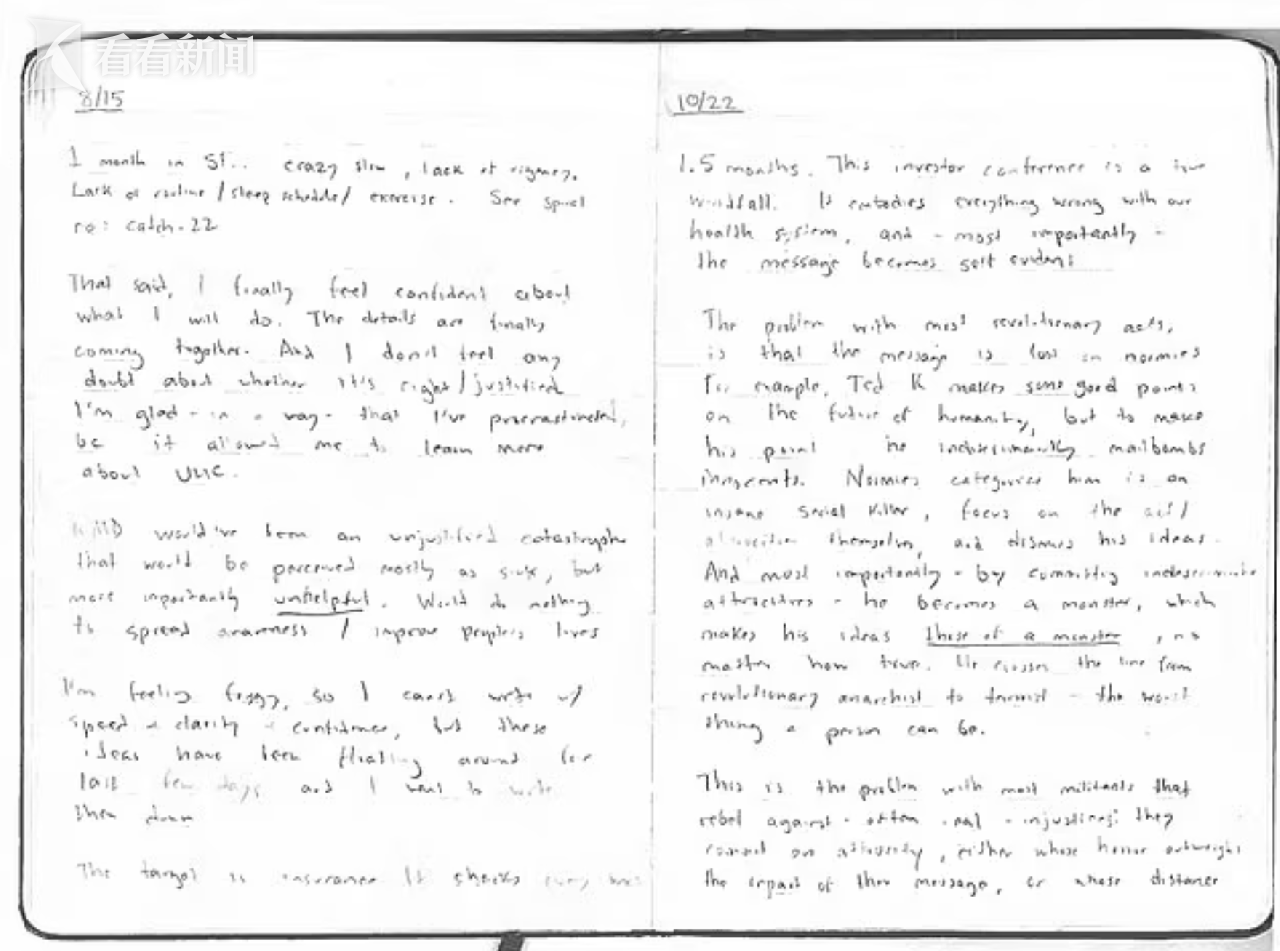 看看新闻
8/15
1 month in SF.. crazy slow, lack of
Lack of routine / sleep schedule / exercise. See spiel
re: catch-22
That said, I finally feel confident about
what I will do. The details are finally
coming together. And I don't feel any
doubt about whether it's right / justified
I'm glad - in a way - that I've procrastinated,
bc it allowed me to learn more
about UHC.
would've been an unjustified catastrophe
that would be perceived mostly as sick, but
more importantly unhelpful. Would do nothing
to spread awareness / improve people's lives
I'm feeling foggy, so I can't write w/
speed + clarity + confidence, but these
ideas have been floating around for
last few days and I want to write
them down
The target is insurance It checks every
10/22
1.5 months. This investor conference is a true
windfall. It embodies everything wrong with our
health system, and - most importantly -
the message becomes self evident
The problem with most revolutionary acts,
is that the message is lost on normies
For example, Ted K makes some good points
on the future of humanity, but to make
his point he indiscriminately mailbombs
innocents. Normies categorize him is an
insane serial killer, focus on the act/
themselves, and dismiss his ideas.
And most importantly - by committing indiscriminate
atrocities - he becomes a monster, which
makes his ideas those of a monster, no
matter how true. He crosses the line from
revolutionary anarchist to terrorist - the worst
thing a person can be.
This is the problem with most militants that
rebel against - often real - injustices: they
commit an atrocity, either whose horror outweighs
the impact of their message, or whose distance